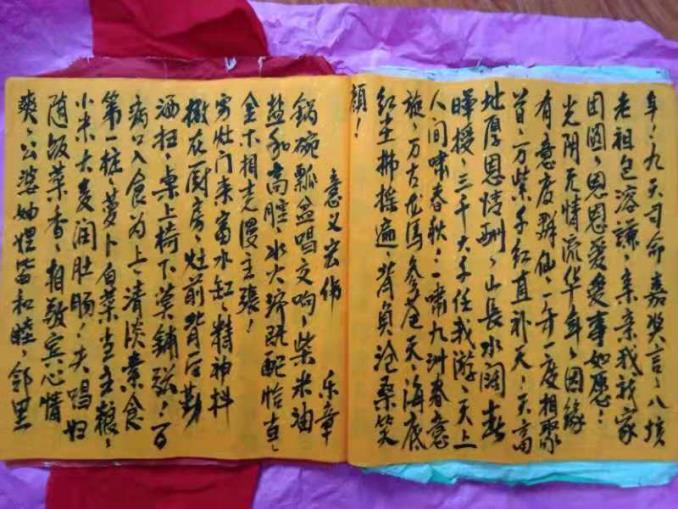 九天司命嘉奖言：八
老祖包溶谦：亲亲我我家
团圆：恩恩爱爱事如愿：
光阴无情流华年：因缘
有意度群仙：一年一度相聚
首：万紫千红直补天：天高
地厚恩情酬：山长水阔慈
晖授：三千大千任我游：天上
人间啸春秋：一啸九洲春意
旋：万古龙马参苍天：海底
红尘拂遍：背负沧桑笑
颜！
乐章
意义宏伟
锅碗瓢盆唱交响：柴米油
盐和高腔：水火配恰当：
金木相克谩主张！
穷灶门来富水缸：精神抖
擞在厨房：灶前背后勤
洒扫：桌上椅下莫铺张！百
病口入食为上：清淡素食
第一桩：萝卜白菜当主粮：
小米大麦润肚肠！夫唱妇
随饭菜香：相敬宾心情
爽：公婆妯娌皆和睦：邻里